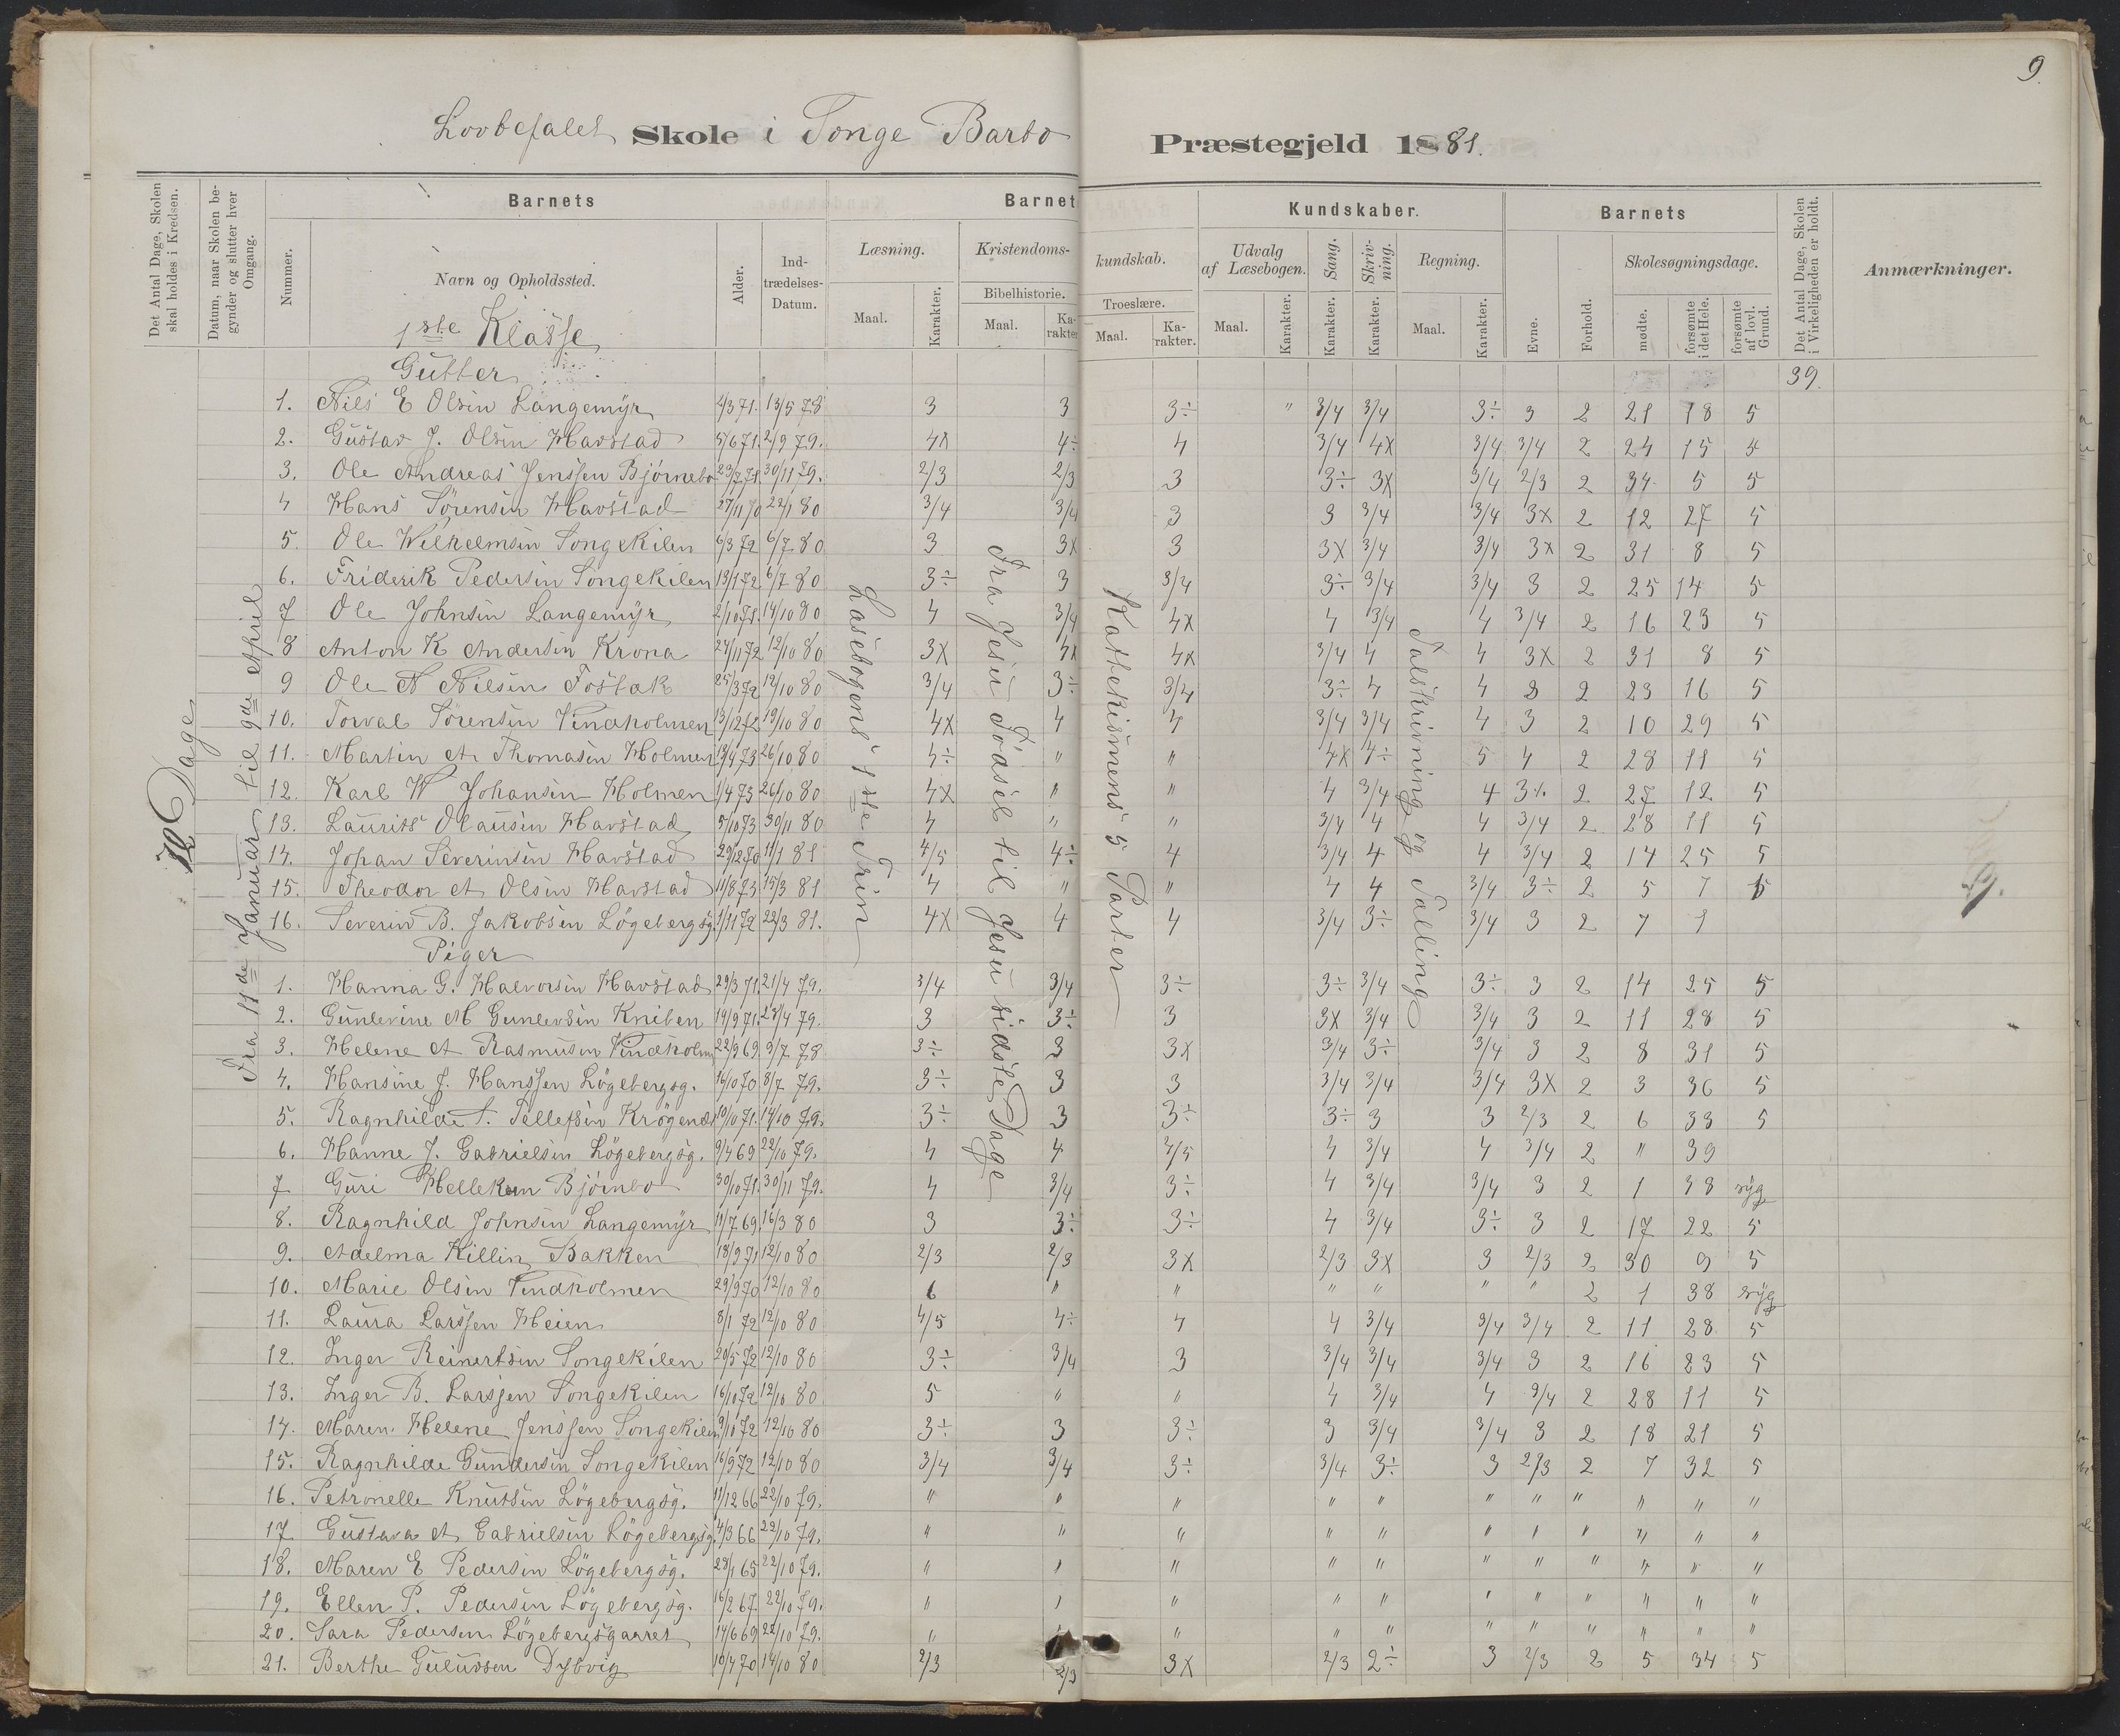 9.
Lovbefalet Skole i Songe Barbo Præstegjeld 1881.
Det Antal Dage, Skolen skal holdes i Kredsen.
Datum, naar Skolen begynder og slutter hver Omgang.
Nummer.
Barnets
Navn og Opholdssted.
Alder.
Indtrædelses-Datum.
Barnets Kundskaber.
Læsning. Maal. Karakter.
Kristendomskundskab.
Bibelhistorie. Maal. Karakter.
Troeslære. Maal. Karakter.
Udvalg af Læsebogen. Maal. Karakter.
Sang. Karakter.
Skrivning. Karakter.
Regning. Maal. Karakter.
Barnets
Evne.
Forhold.
Skolesøgningsdage.
mødte. forsømte i det Hele. forsømte af lovl. Grund.
Det Antal Dage, Skolen i Virkeligheden er holdt.
Anmærkninger.
72 Dage
Fra 11de Januar til 9de April
Læsebogens 1ste Trin
Fra Jesu Fødsel til Jesu sidste Dage
Kathekismens 5 Parter
Talskrivning og Tælling
1ste Klasse
Gutter
39.
1. Nils E Olsen Langemyr 4/3 71. 13/5 78 3 3 3÷ " 3/4 3/4 3÷ 3 2 21 18 5
2. Gustav J. Olsen Havstad 5/6 71. 2/9 79. 4x 4÷ 4 3/4 4x 3/4 3/4 2 24 15 5
3. Ole Andreas Jenssen Bjørnebo 23/7 71. 30/11 79. 2/3 2/3 3 3÷ 3x 3/4 2/3 2 34 5 5
4 Hans Sørensen Havstad 27/11 70 22/1 80 3/4 3/4 3 3 3/4 3/4 3x 2 12 27 5
5. Ole Wilhelmsen Songekilen 6/3 72 6/7 80 3 3x 3 3x 3/4 3/4 3x 2 31 8 5
6. Friderik Pedersen Songekilen 13/1 72 6/7 80 3÷ 3 3/4 3÷ 3/4 3/4 3 2 25 14 5
7 Ole Johnsen Langemyr 2/10 71. 14/10 80 4 3/4 4x 4 3/4 4 3/4 2 16 23 5
8 Anton K Andersen Krona 24/11 72 12/10 80 3x 4x 4x 3/4 4 4 3x 2 31 8 5
9 Ole N Nilsen Fostak 25/3 72 12/10 80 3/4 3÷ 3/4 3÷ 4 4 3 2 23 16 5
10. Torval Sørensen Vindholmen 13/12 72 19/10 80 4x 4 4 3/4 3/4 4 3 2 10 29 5
11. Martin A. Thomasen Holmen 13/4 73 26/10 80 4÷ " " 4x 4÷ 5 4 2 28 11 5
12. Karl W Johansen Holmen 1/4 73 26/10 80 4x " " 4 3/4 4 3÷ 2 27 12 5
13. Laurits Olausen Havstad 5/10 73 30/11 80 4 " " 3/4 4 4 3/4 2 28 11 5
14. Johan Severinsen Havstad 29/12 70 11/1 81 4/5 4÷ 4 3/4 4 4 3/4 2 14 25 5
15. Theodor A Olsen Havstad 11/8 73 15/3 81 4 " " 4 4 3/4 3÷ 2 5 7 5
16. Severin B. Jakobsen Løgebergsg. 1/11 72 22/3 81. 4x 4 4 3/4 3÷ 3/4 3 2 7 1
Piger
1. Hanna G. Halvorsen Havstad 29/3 71. 21/4 79. 3/4 3/4 3÷ 3÷ 3/4 3÷ 3 2 14 25 5
2. Gunlevine M Gunlevsen Kniben 14/9 71. 28/4 79. 3 3÷ 3 3x 3/4 3/4 3 2 11 28 5
3. Helene A Rasmusen Vindholm 22/3 69 9/7 78 3÷ 3 3x 3/4 3÷ 3/4 3 2 8 31 5
4. Hansine J. Hanssen Løgebergsg. 16/10 70 8/7 79. 3÷ 3 3 3/4 3/4 3/4 3x 2 3 36 5
5. Ragnhilde A. Tellefsen 10/10 71. 14/10 79. 3÷ 3 3÷ 3÷ 3 3 2/3 2 6 33 5
6. Hanne J. Gabrielsen Løgebergsg. 9/4 69 22/10 79. 4 4 4/5 4 3/4 4 3/4 2 " 39
7 Guri Helleksen Bjørnbo 30/10 71. 30/11 79. 4 3/4 3÷ 4 3/4 3/4 3 2 1 38 syg
8. Ragnhild Johnsen Langemyr 11/7 69. 16/3 80 3 3÷ 3÷ 4 3/4 3÷ 3 2 17 22 5
9. Adelma Killin Bakken 18/9 71 12/10 80 2/3 2/3 3x 2/3 3x 3 2/3 2 30 9 5
10. Marie Olsen Vindholmen 29/9 70 12/10 80 6 " " " " " " 2 1 38 syg
11. Laura Larssen Heien 8/1 72 12/10 80 4/5 4÷ 4 4 3/4 3/4 3/4 2 11 28 5
12. Inger Reinertsen Songekilen 20/5 72 12/10 80 3÷ 3/4 3 3/4 3/4 3/4 3 2 16 23 5
13. Inger B. Larssen Songekilen 16/10 72 12/10 80 5 " " 4 3/4 4 3/4 2 28 11 5
14. Maren Helene Jenssen Songekilen 9/10 72 12/10 80 3÷ 3 3÷ 3 3/4 3/4 3 2 18 21 5
15. Ragnhilde Gundersen Songekilen 16/9 72 12/10 80 3/4 3/4 3÷ 3/4 3÷ 3 2/3 2 7 32 5
16. Petronelle Knutsen Løgebergsg. 11/12 66 22/10 79. " " " " " " " " " " "
17 Gustava A. Gabrielsen Løgebergsg. 4/3 66 22/10 79. " " " " " " " " " " "
18. Maren E Pedersen Løgebergsg. 28/1 65 22/10 79. " " " " " " " " " " "
19. Ellen P. Pedersen Løgebergsg. 16/2 67 22/10 79. " " " " " " " " " " "
20. Sara Pedersen Løgebergsgaaret 14/6 69 22/10 79. " " " " " " " " " "
21. Berthe Gulusen Dybvig 10/4 70 14/10 80 2/3 2/3 3x 2/3 2÷ 3 2/3 2 5 34 5